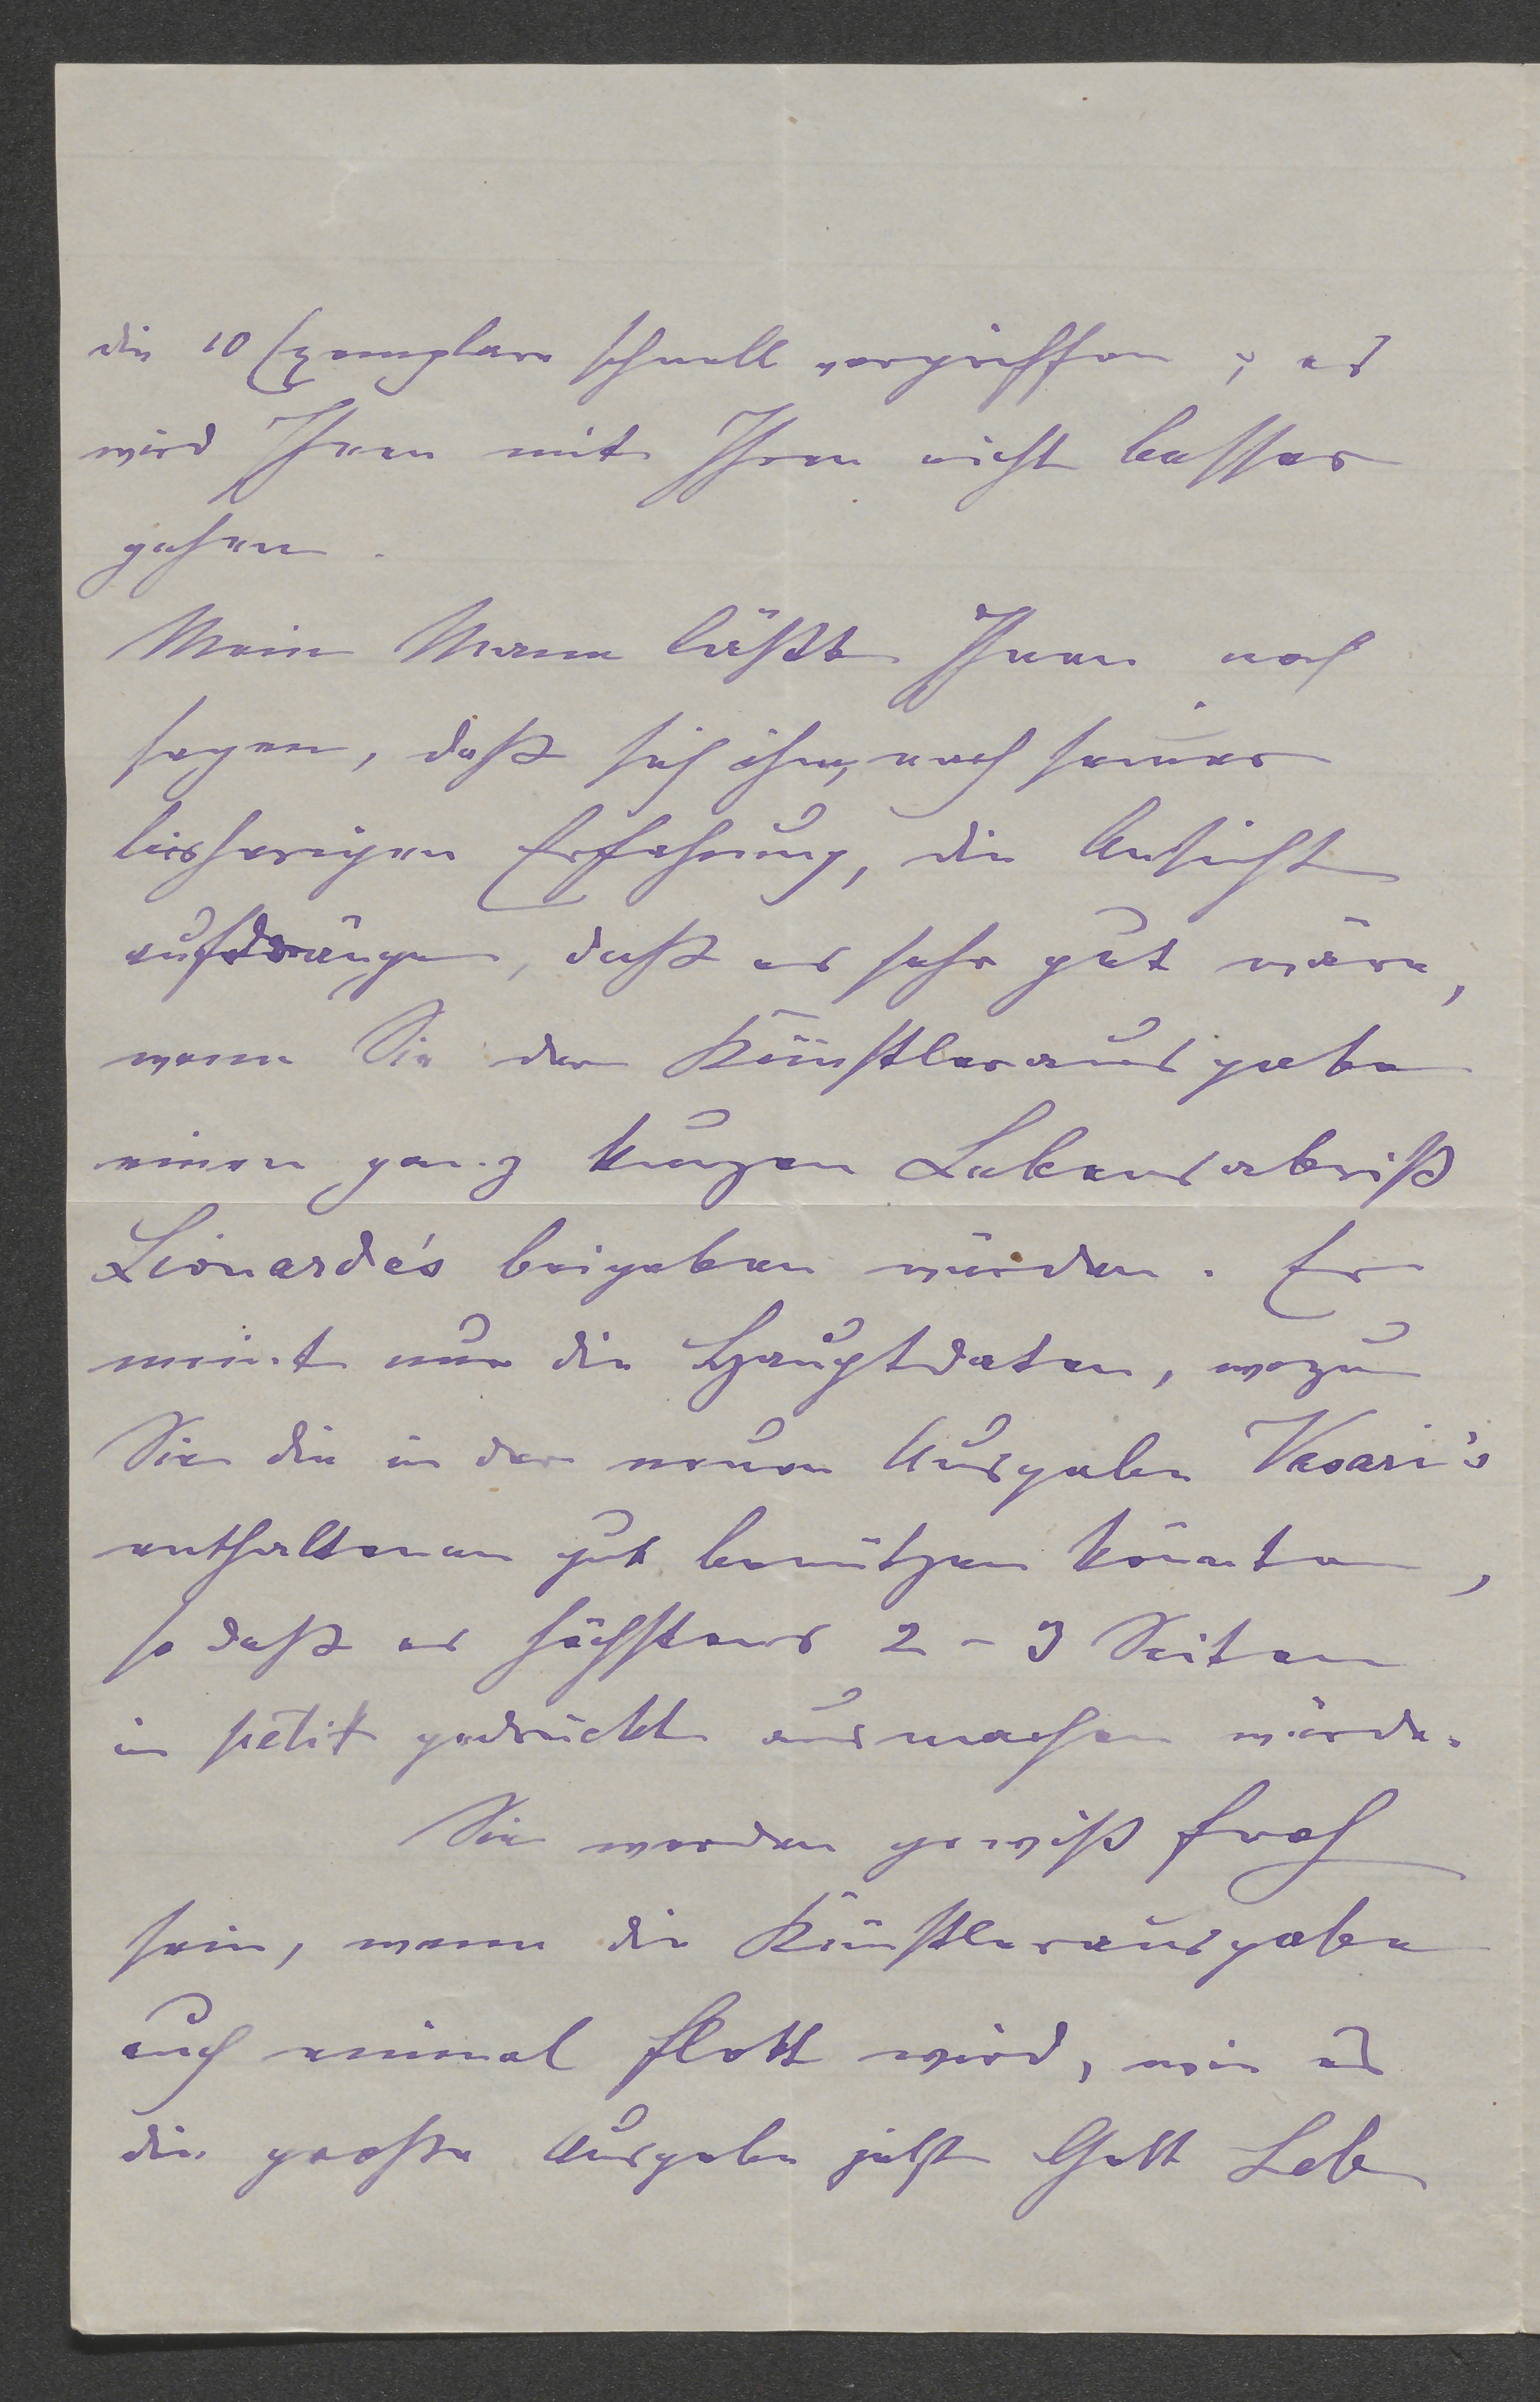 die 10 Exemplare schnell vergriffen; es
wird Ihnen mit Ihren nicht besser
gehen.
Mein Mann läßt Ihnen noch
sagen, daß sich ihm, nach seiner
bisherigen Erfahrung, die Ansicht
aufdränge, daß es sehr gut wäre,
wenn Sie der Künstlerausgabe
einen ganz kurzen Lebensabriß
Lionardo's beigeben würden. Er
meint nur die Hauptdaten, wozu
Sie die in der neuen Ausgabe Vasari's
enthaltenen gut benützen könnten,
so daß es höchstens 2 - 3 Seiten
in petit gedruckt ausmachen würde.
Sie werden gewiß froh
sein, wenn die Künstlerausgabe
auch einmal flott wird, wie es
die große Ausgabe jetzt Gott Lob